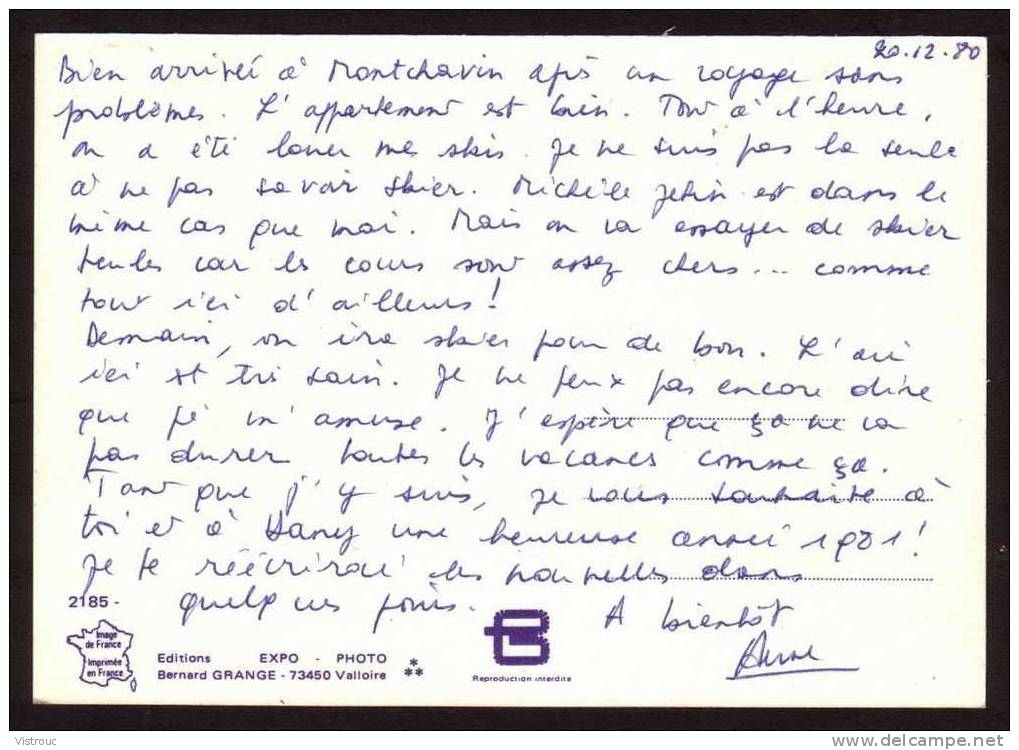 20.12.80
Bien arrivée à Montchavin après un voyage sans
problèmes. L'appartement est bien. Tout à l'heure,
on a été louer mes skis. Je ne suis pas la seule
à ne pas savoir skier. Michèle est dans le
même cas que moi. Mais on va essayer de skier
seules car les cours sont assez chers... comme
tout ici d'ailleurs!
Demain, on ira skier pour de bon. L'air
ici est très sain. Je ne peux pas encore dire
que je m'amuse. J'espère que ça ne va
pas durer toutes les vacances comme ça.
Tant que j'y suis, je vous souhaite à
toi et à Dany une heureuse année 1981!
Je te réécrirai des nouvelles dans
quelques jours. A bientôt
2185 -
Image
de France
Imprimée
en France
Editions EXPO - PHOTO
Bernard GRANGE - 73450 Valloire
Reproduction interdite
Vistrouc
www.delcampe.net